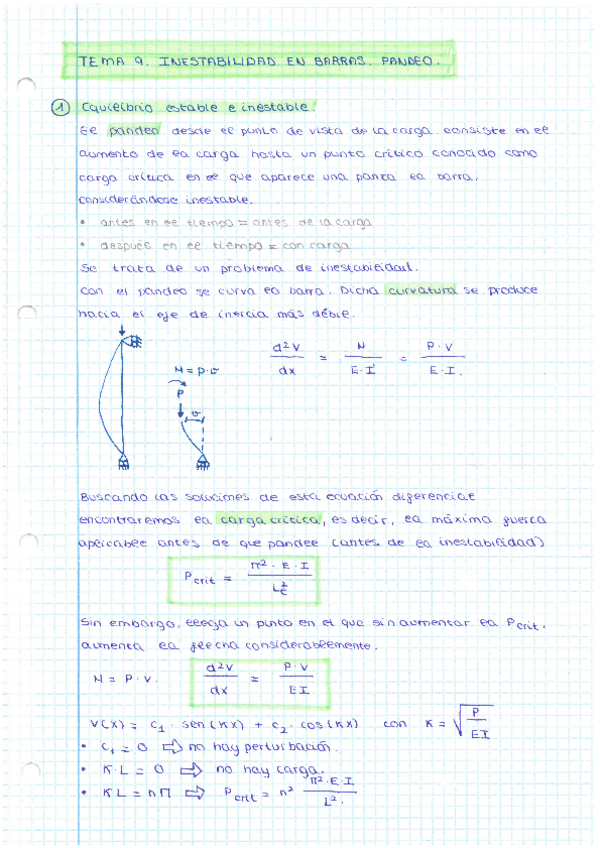 TEMA 9. INESTABILIDAD EN BARRAS. PANDEO.
1 Equilibrio estable e inestable.
El pandeo desde el punto de vista de la carga consiste en el
aumento de la carga hasta un punto crítico conocido como
carga crítica en el que aparece una panza la barra,
considerándose inestable.
• antes en el tiempo = antes de la carga
• después en el tiempo = con carga
Se trata de un problema de inestabilidad.
Con el pandeo se curva la barra. Dicha curvatura se produce
hacia el eje de inercia más débil.
d²V/dx = M/E·I = P·V/E·I.
M = P·v
P
v
Buscando las soluciones de esta ecuación diferencial
encontraremos la carga crítica, es decir, la máxima fuerza
aplicable antes de que pandee (antes de la inestabilidad)
P crit = π² · E · I / L²
Sin embargo, llega un punto en el que sin aumentar la Pcrit.
aumenta la flecha considerablemente.
M = P·V. d²V/dx = P·V/EI
V(x) = C₁ · sen(Kx) + C₂ · cos(Kx) con K = √P/EI
• C₁ = 0 ⇨ no hay perturbación.
• K·L = 0 ⇨ no hay carga.
• KL = nΠ ⇨ Pcrit = n² π²·E·I/L².